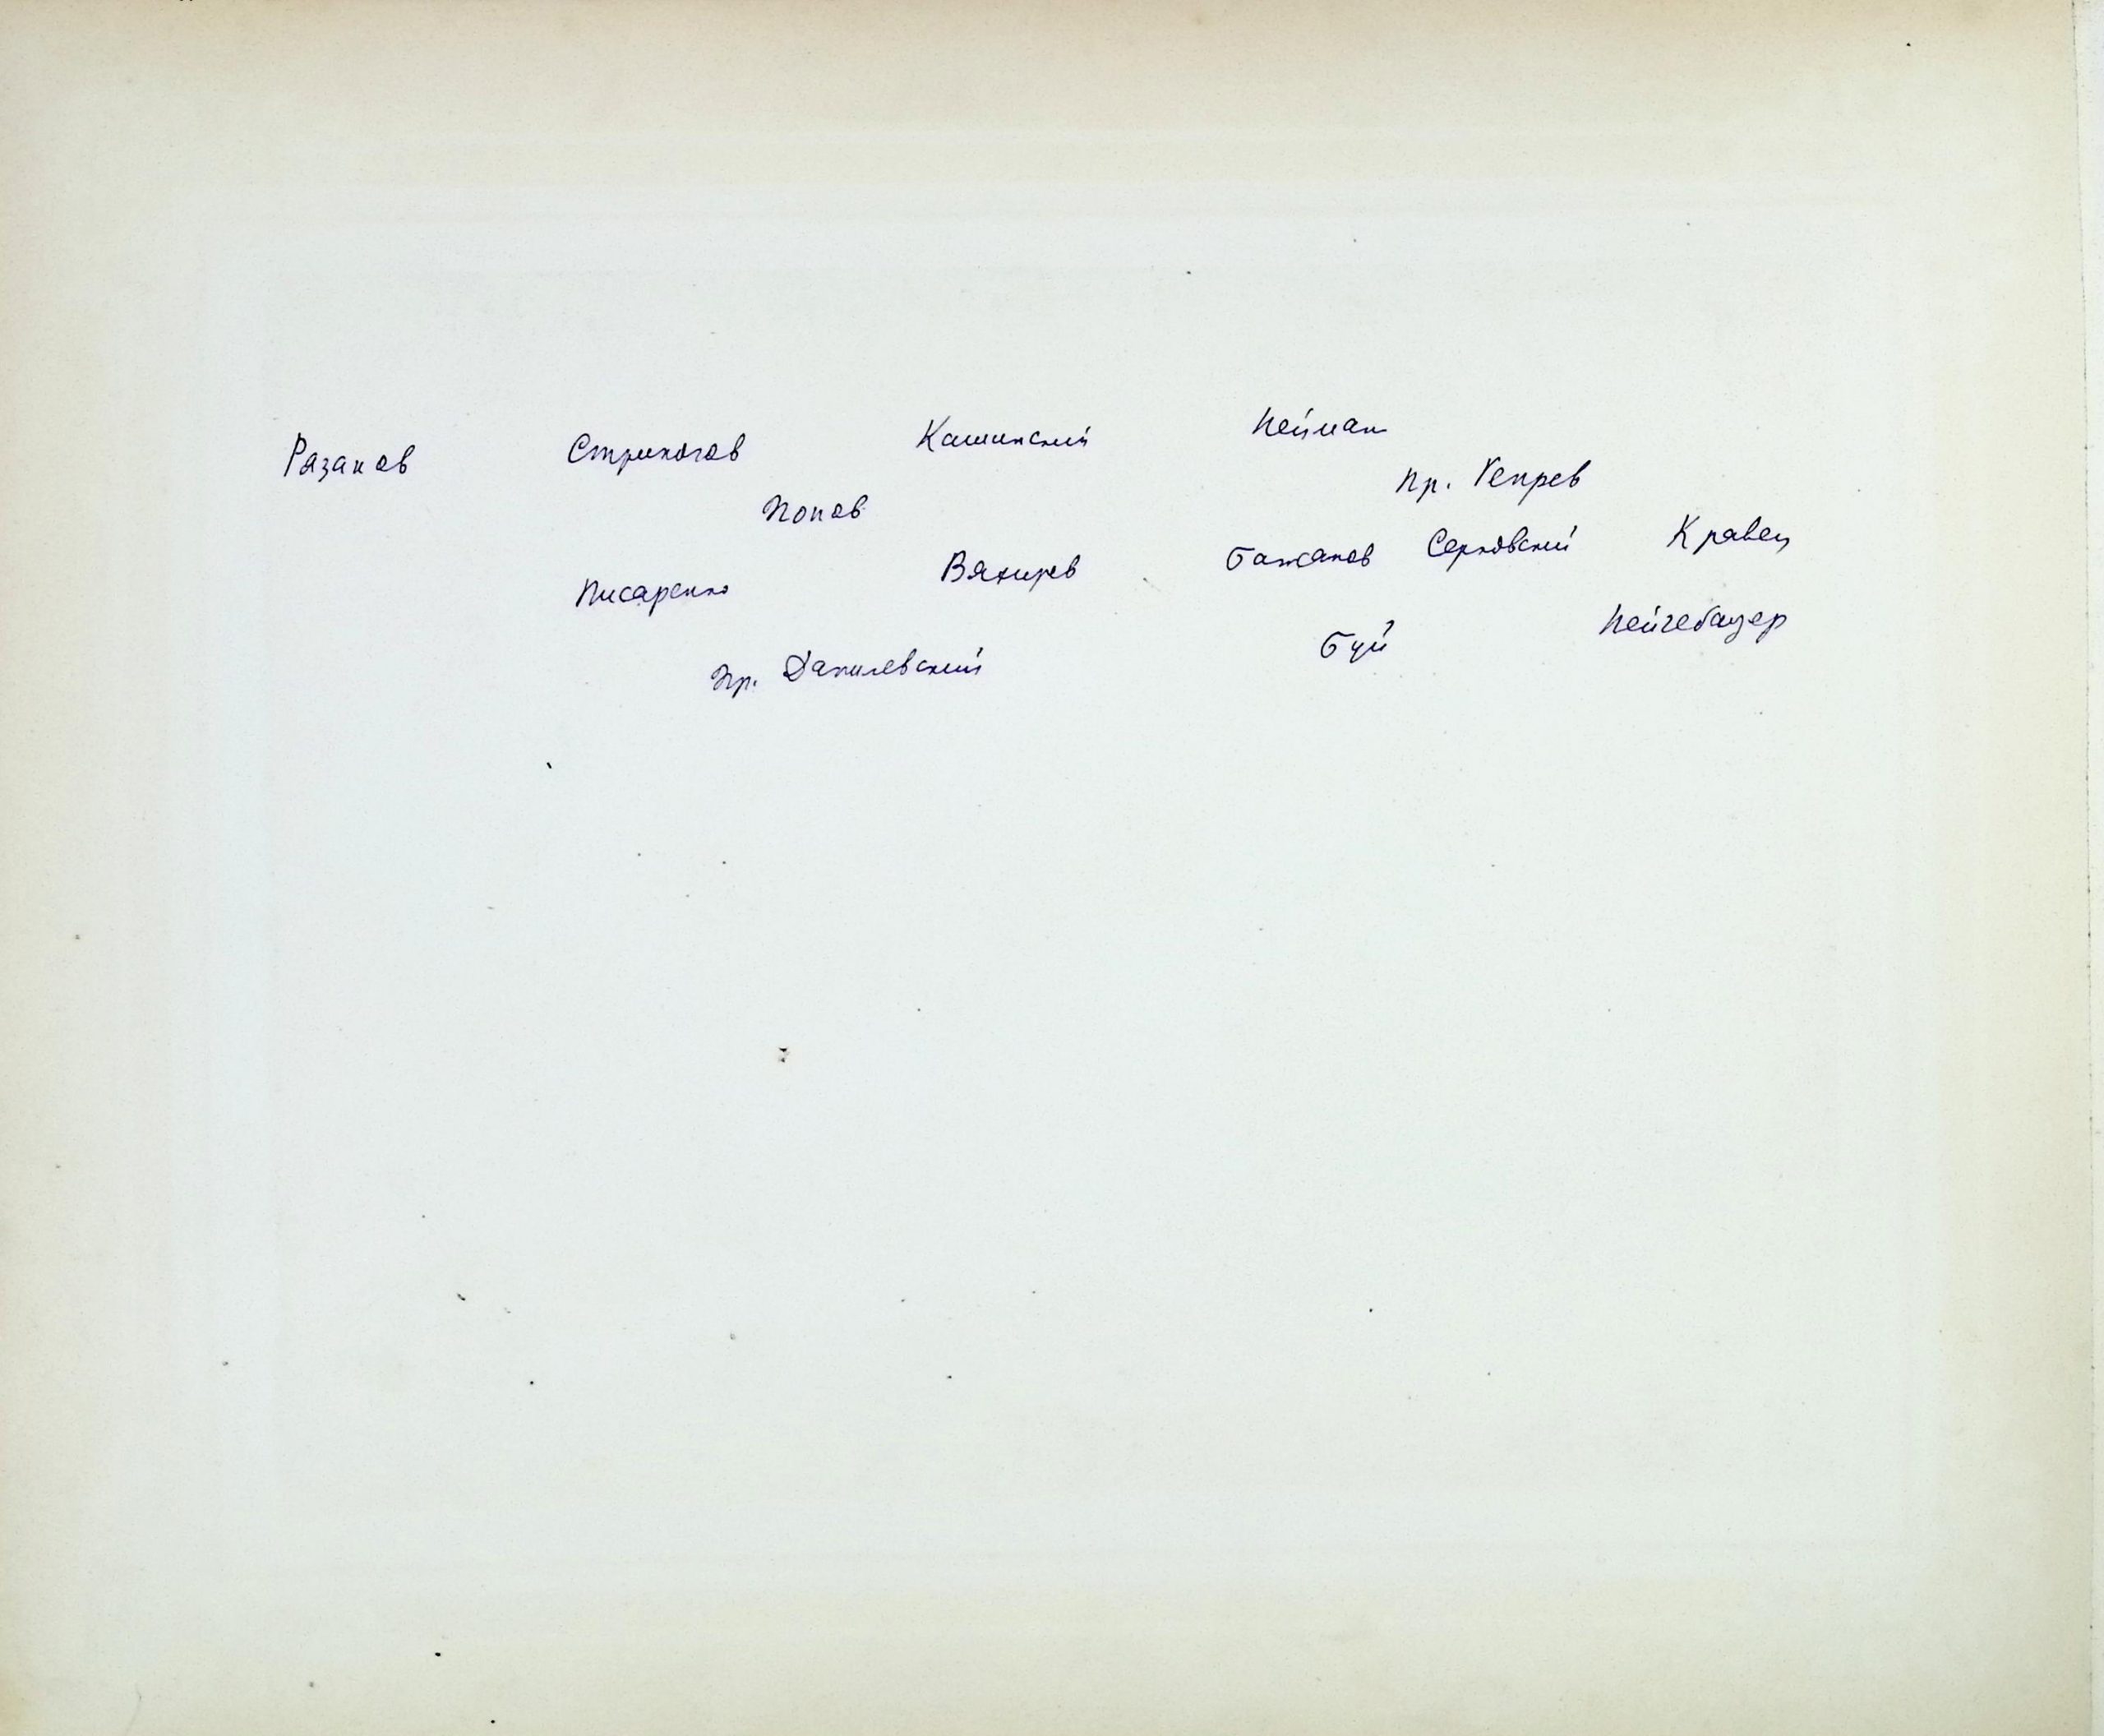 Разаков Стриногов Кашинский Нейман
Пр. Репрев
Попов
Писаренко Вяхирев Бажанов Серковский Кравец
Пр. Данилевский Буй Нейгебауер